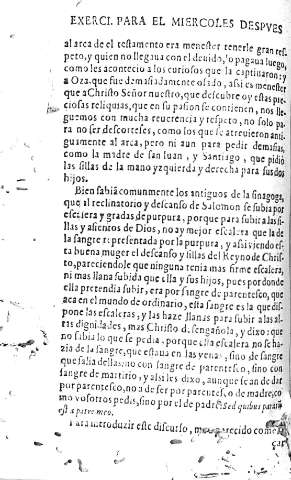 EXERCI. PARA EL MIERCOLES DESPVES
al arca de el testamento era menester tenerle gran res-
peto, y quien no llegaua con el deuido, lo pagaua luego,
como les acontecio a los curiosos que la captinaron: y
a Oza, que fue demasiadamente osado, assi es menester
a Christo Señor nuestro, que descubre oy estas pre-
ciosas reliquias, que en su passion se contienen, nos lle-
guemos con mucha reuerencia y respeto, no solo pa-
ra no ser descorteses, como los que se atreuieron anti-
guamente al arca, pero ni aun para pedir demasias,
como la madre de san Iuan, y Santiago, que pidiò
las sillas de la mano yzquierda y derecha para sus dos
hijos.
Bien sabiã comunmente los antiguos de la sinagoga,
que al reclinatorio y descanso de Salomon se subia por
escalera y gradas de purpura, porque para subir a las si-
llas y assientos de Dios, no ay mejor escalera que la de
la sangre representada por la purpura, y assi viendo es-
ta buena muger el descanso y sillas del Reyno de Chris-
to, pareciendole que ninguna tenia mas firme escalera,
ni mas llana subida que ella y sus hijos, pues por donde
ella pretendia subir, era por sangre de parentesco, que
aca en el mundo de ordinario, esta sangre es la que dis-
pone las escaleras, y las haze llanas para subir a las al-
tas dignidades, mas Christo desengañola, y dixo: que
no sabia lo que se pedia: porque essa escalera no se ha-
zia de la sangre, que estaua en las venas, sino de sangre
que salia dellas: no con sangre de parentesco, sino con
sangre de martirio, y assi les dixo, aunque se an de dar
por parentesco, no a de ser por parentesco, de madre, co-
mo vosotros pedis, sino por el de padre: Sed quibus paratũ
est a patre meo.
Para introduzir este discurso, me a parecido comen-
çar